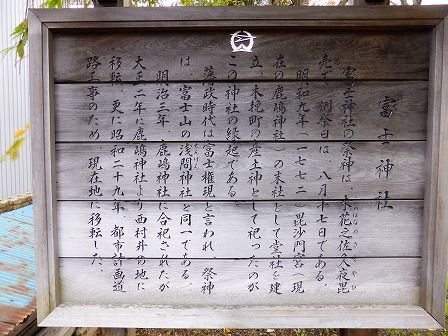 富士神社
富士神社の祭神は、木花之佐久夜毘
売で、例祭日は、八月十七日である。
明和九年(一七七二)毘沙門宮(現
在の鹿嶋神社)の末社として堂社を建
立、木挽町の産土神として祀ったのが
この神社の縁起である。
藩政時代は富士権現と言われ、祭神
は、富士山の浅間神社と同一である。
明治三年、鹿嶋神社に合祀されたが
大正二年に鹿嶋神社より西村井の地に
移転、更に昭和二十九年、都市計画道
路工事のため、現在地に移転した。